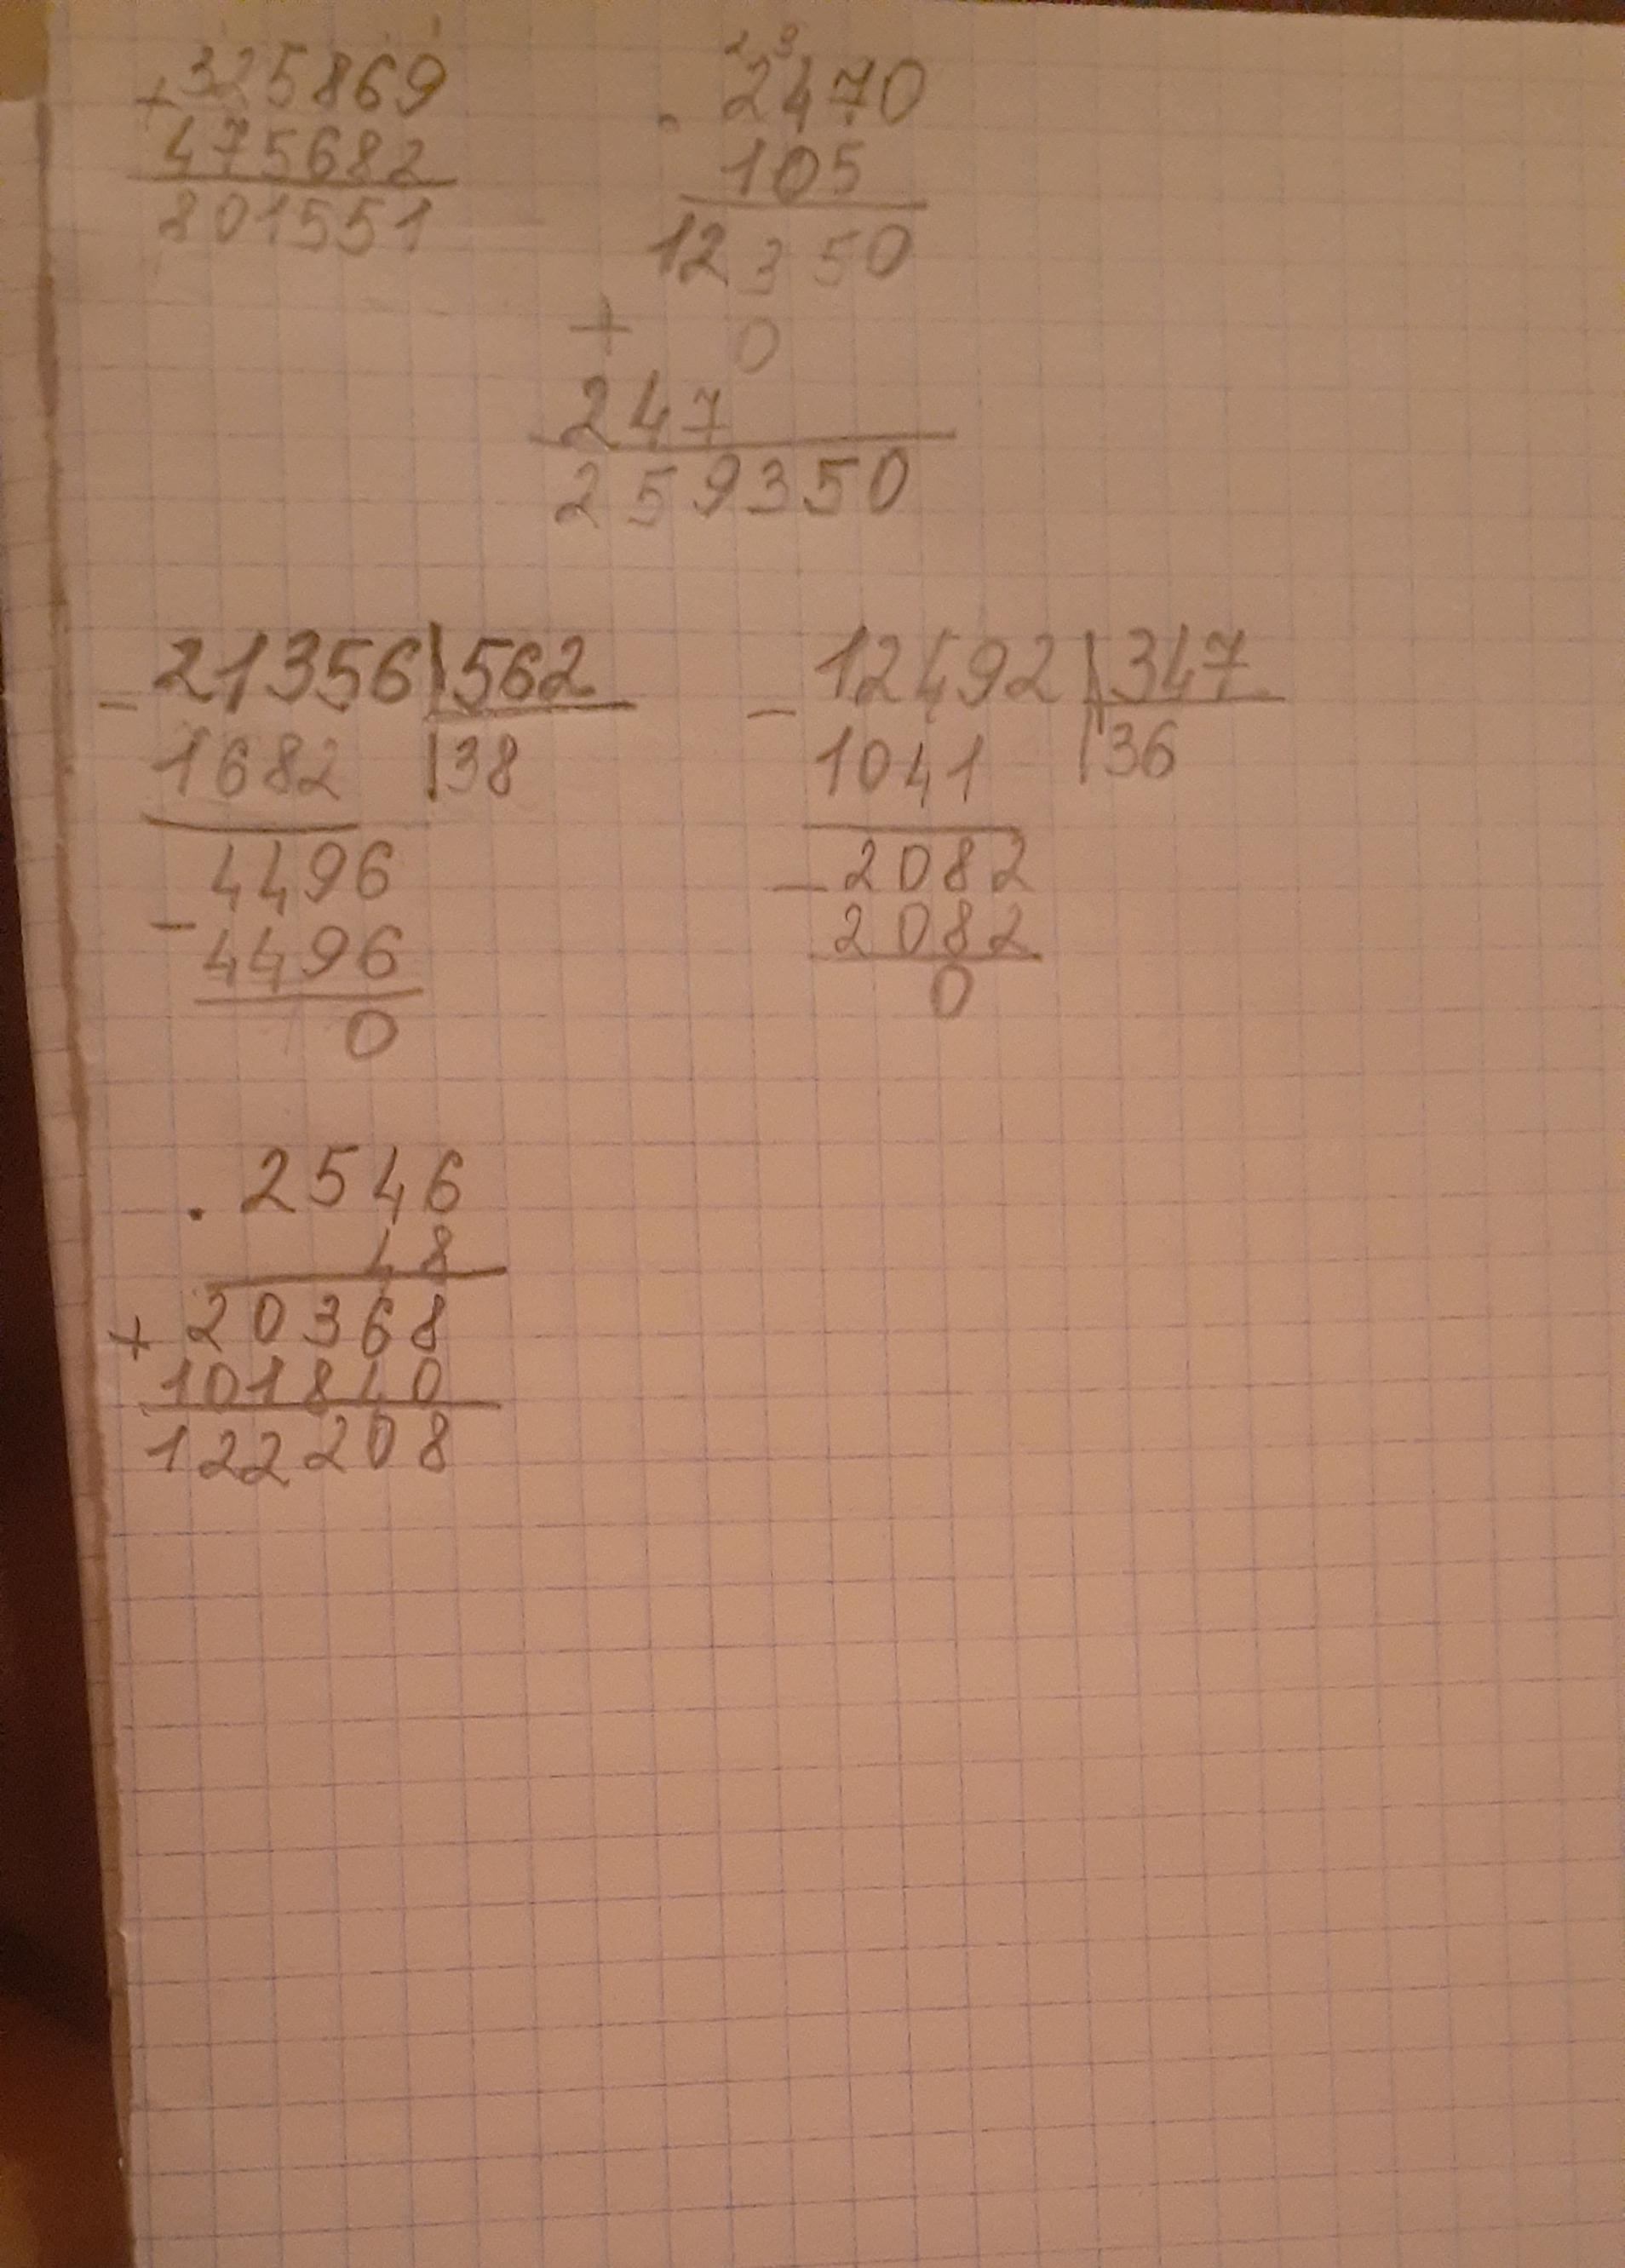 + 325869
475682
801551
2 3
· 2470
105
12350
+ 0
247
259350
- 21356 | 562
1682 | 38
4496
- 4496
0
- 12492 | 347
1041 | 36
- 2082
2082
0
· 2546
48
+ 20368
101840
122208